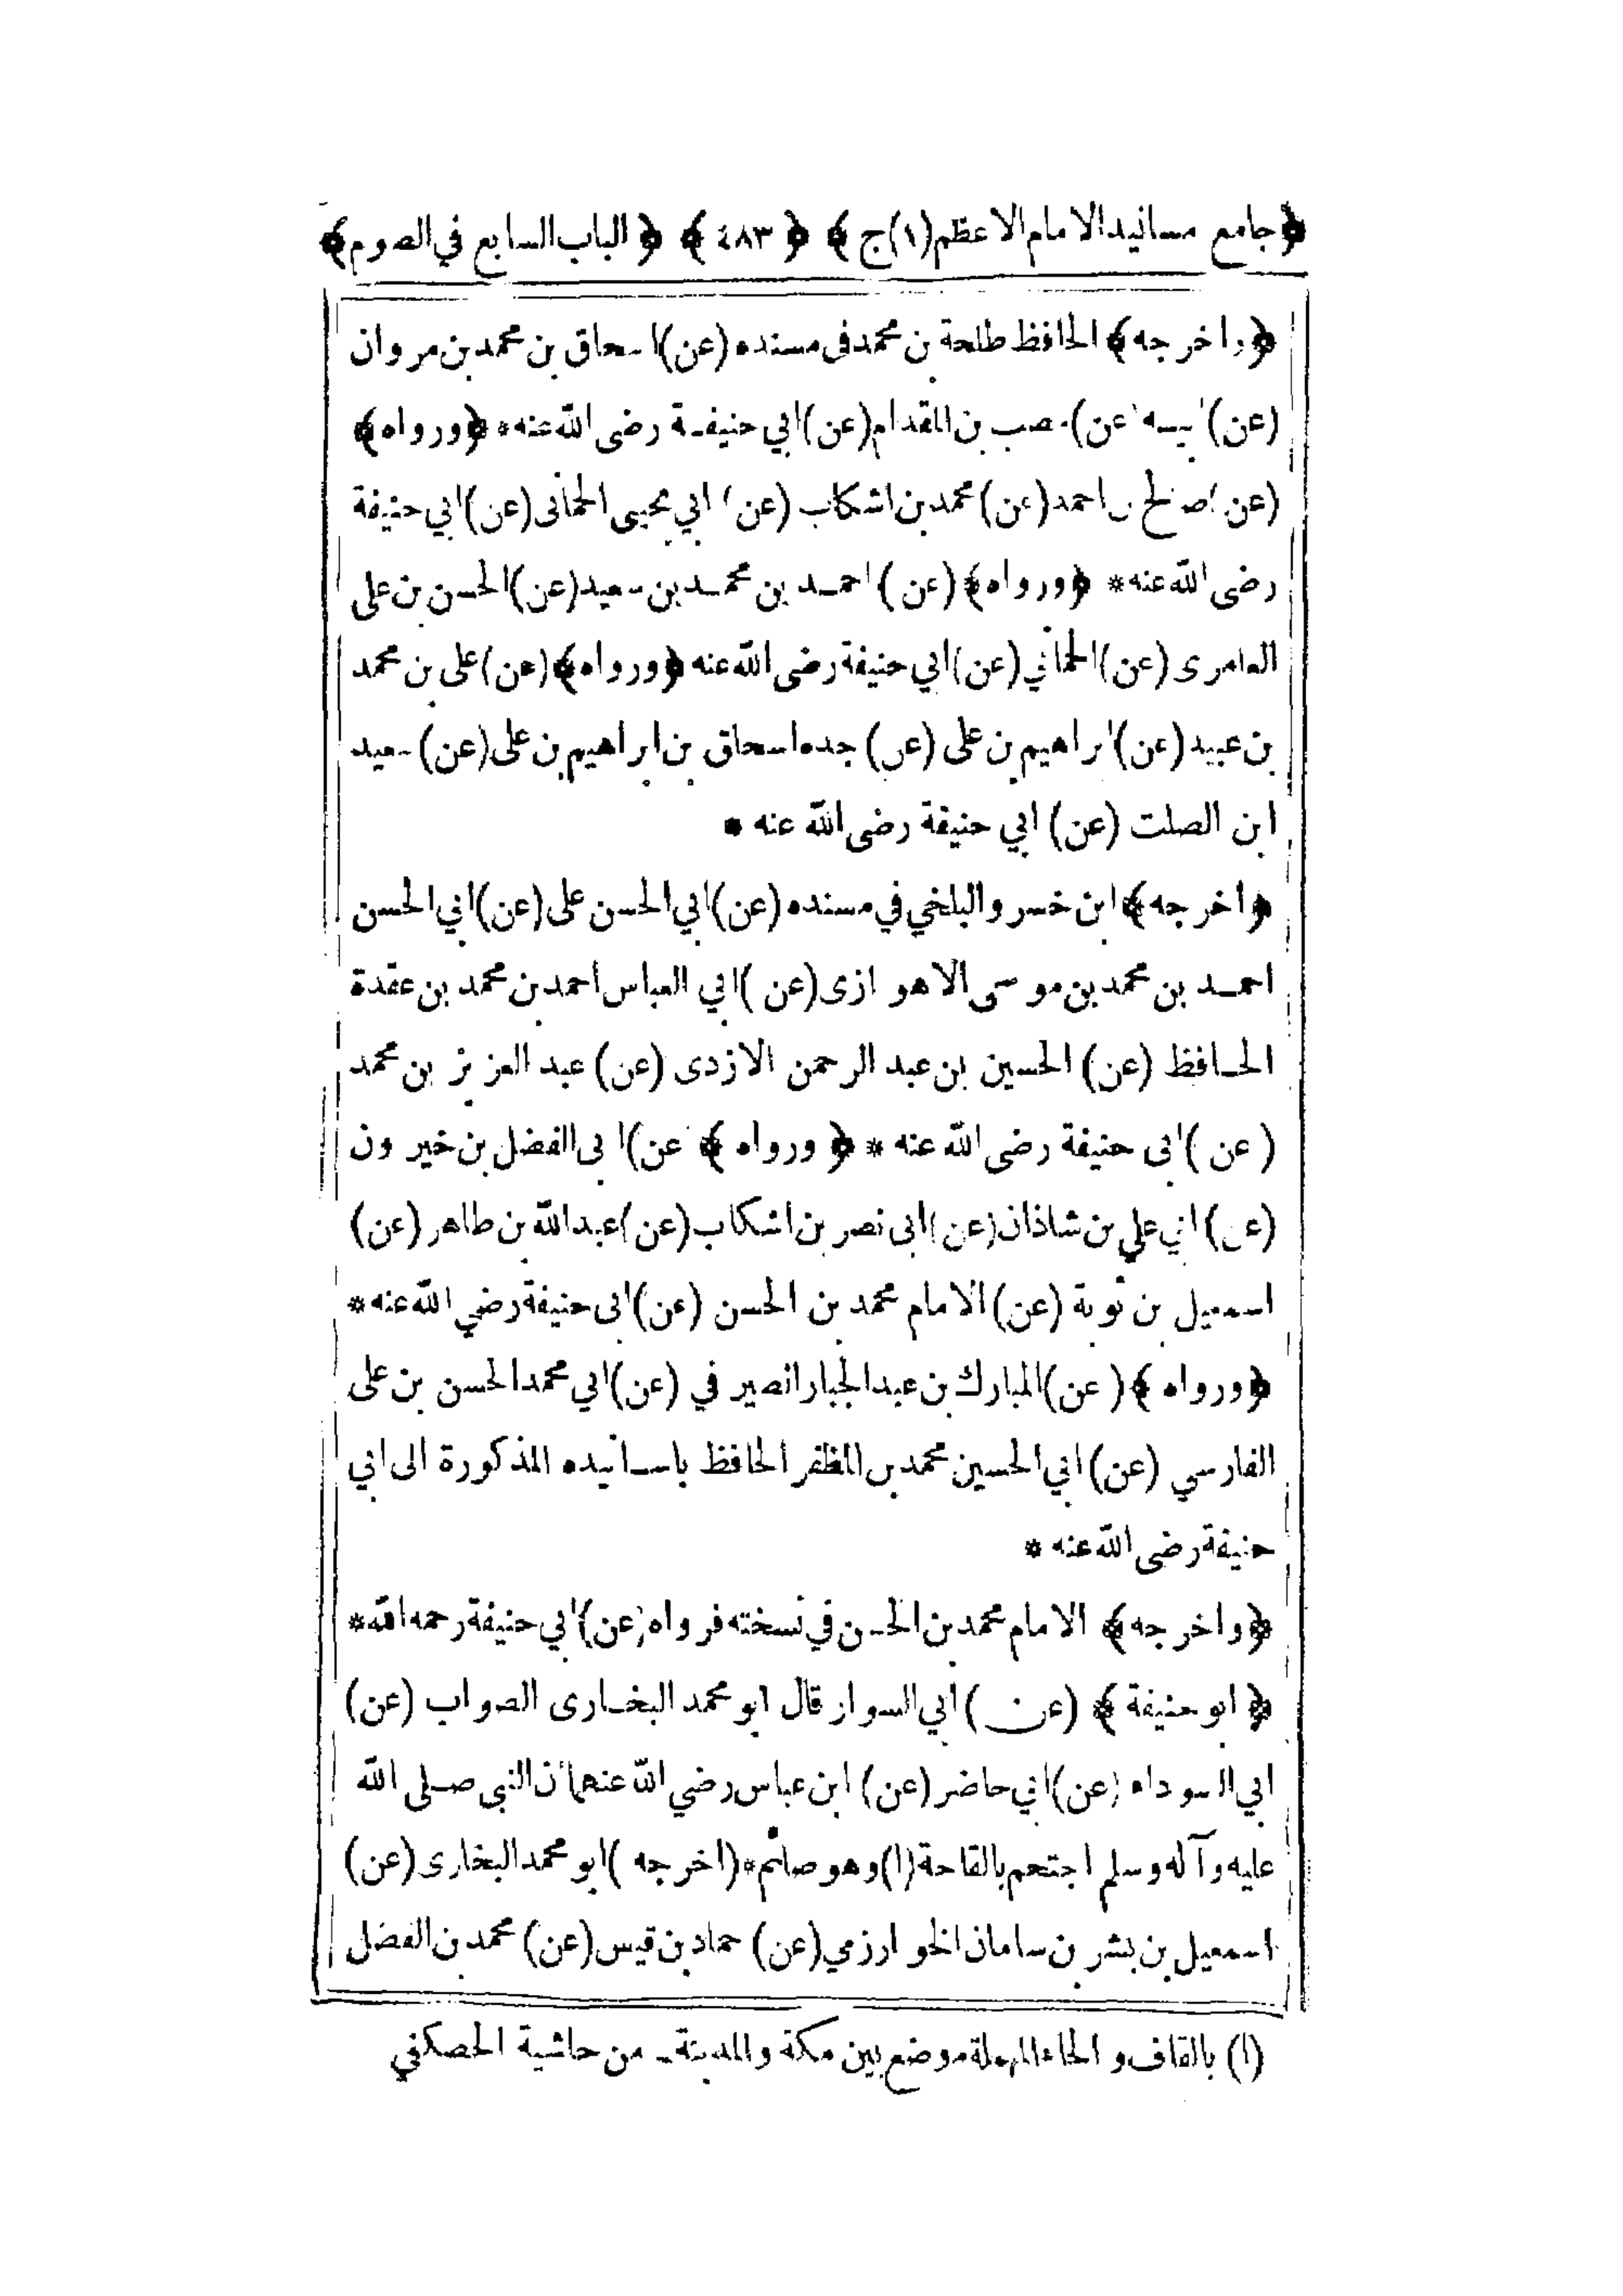 ﴿جامع مسانيد الامام الاعظم(١)ج﴾ ﴿٤٨٣﴾ ﴿الباب السابع في الصوم﴾
﴿واخرجه﴾ الحافظ طلحة بن محمد فى مسنده (عن) اسحاق بن محمد بن مروان
(عن) ابيه (عن) مصعب بن المقدام (عن) ابي حنيفة رضى الله عنه * ﴿ورواه﴾
(عن) صالح بن احمد (عن) محمد بن اشكاب (عن) ابي يحيى الحمانى (عن) ابي حنيفة
رضى الله عنه * ﴿ورواه﴾ (عن) احمد بن محمد بن سعيد (عن) الحسن بن على
العامرى (عن) الحماني (عن) ابي حنيفة رضى الله عنه ﴿ورواه﴾ (عن) على بن محمد
بن عبيد (عن) ابراهيم بن على (عن) جده اسحاق بن ابراهيم بن على (عن) سعيد
ابن الصلت (عن) ابي حنيفة رضى الله عنه *
﴿واخرجه﴾ ابن خسرو البلخي في مسنده (عن) ابي الحسن على (عن) ابي الحسن
احمد بن محمد بن موسى الاهوازى (عن) ابي العباس احمد بن محمد بن عقدة
الحافظ (عن) الحسين بن عبد الرحمن الازدى (عن) عبد العزيز بن محمد
(عن) ابى حنيفة رضى الله عنه * ﴿ورواه﴾ (عن) ابى الفضل بن خيرون
(عن) ابي علي بن شاذان (عن) ابى نصر بن اشكاب (عن) عبد الله بن طاهر (عن)
اسمعيل بن توبة (عن) الامام محمد بن الحسن (عن) ابى حنيفة رضي الله عنه *
﴿ورواه﴾ (عن) المبارك بن عبد الجبار الصيرفي (عن) ابي محمد الحسن بن على
الفارسي (عن) ابي الحسين محمد بن المظفر الحافظ باسانيده المذكورة الى ابي
حنيفة رضى الله عنه *
﴿واخرجه﴾ الامام محمد بن الحسن في نسخته فرواه (عن) ابي حنيفة رحمه الله *
﴿ابو حنيفة﴾ (عن) أبي السوار قال ابو محمد البخارى الصواب (عن)
ابي السوداء (عن) ابي حاضر (عن) ابن عباس رضي الله عنهما أن النبي صلى الله
عليه وآله وسلم احتجم بالقاحة (١) وهو صائم * (اخرجه) ابو محمد البخارى (عن)
اسمعيل بن بشر بن سامان الخوارزمي (عن) حماد بن قيس (عن) محمد بن الفضل
(١) بالقاف و الحاء المهملة موضع بين مكة والمدينة ـ من حاشية الحصكفي